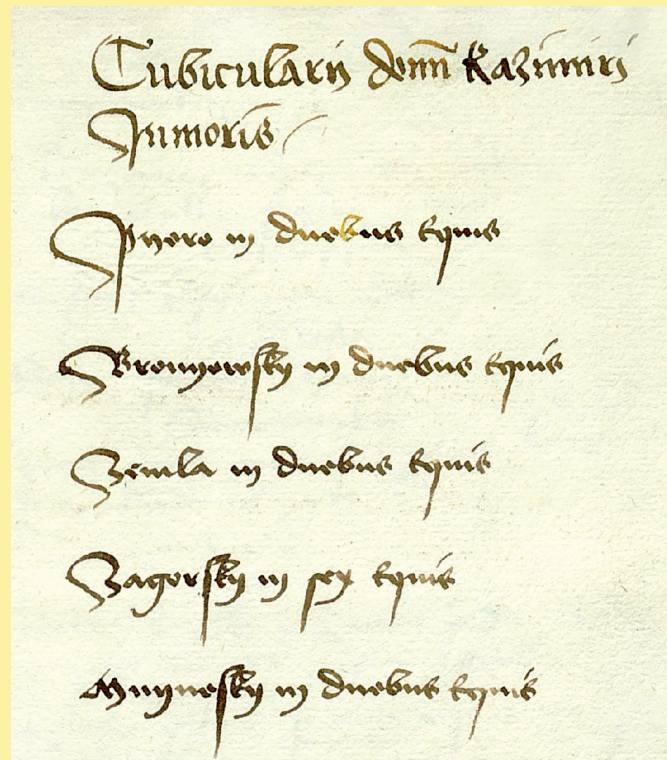 Cubicularii domini Kazimiri
Junioris
in duebus equis
Bronyowsky in duebus equis
Zemla in duebus equis
Zagorsky in sex equis
in duebus equis